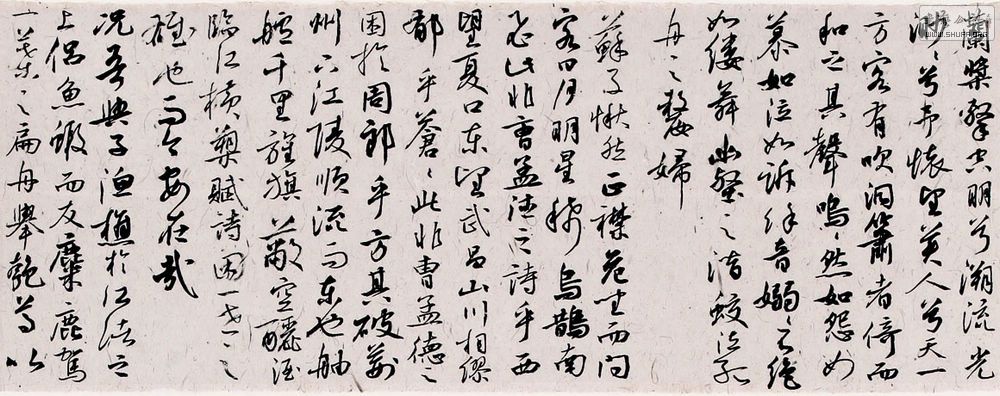 蘭槳擊空明兮溯流光
渺々兮予懷望美人兮天一
方客有吹洞簫者倚而
和之其聲嗚々然如怨如
慕如泣如訴餘音嫋々不絕
如縷舞幽壑之潛蛟泣孤
舟之嫠婦
蘇子愀然正襟危坐而問
客曰月明星稀烏鵲南
飛此非曹孟德之詩乎西
望夏口東望武昌山川相繆
郁乎蒼々此非曹孟德之
困於周郎乎方其破荊
州下江陵順流而東也舳
艫千里旌旗蔽空釃酒
臨江橫槊賦詩固一世之
雄也而今安在哉
況吾與子漁樵於江渚之
上侶魚蝦而友麋鹿駕
一葉之扁舟舉匏尊以